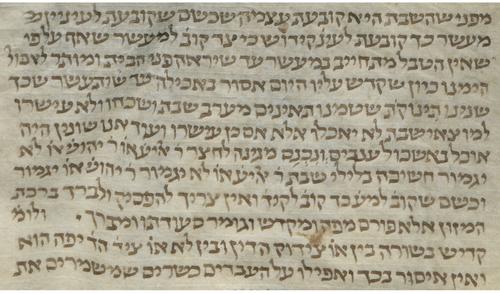 מפני שהשבת היא קובעת עצמה שכשם שקובעת לעיניין מ
מעשר כך קובעת לעינ קידוש כיצד קוב למעשר שאף על פי
שאין הטבל מתחוייב במעשר עד שיראה פני הבית ומותר לאכול
הימנו כיון שקדש עליו היום אסור באכילה עד שיתעשר שכך
שנינו תינוקת שטמנו תאינים מערב שבת ושכחו ולא עישרו
למוצאי שבת לא יאכלו אלא אם כן עישרו ועוד אנו שונין היה
אוכל באשכול ענבים ונכנס מגינה לחצר ר אליע או ר יהוש או לא
יגמור חשובה בלילי שבת ר אליע או לא יגמור ר יהוש או יגמור
וכשם שקוב למעכד קוב לקיד ואין צריך להפסיק ולברך ברכת
המזון אלא פורס מפה ומקדש וגומר סעודתו ומברך ולומ
קדיש בשורה בין או צידוק הדין ובין לא או ציד הד יפה הוא
ואין איסור בכך ואפילו על העבדים כשרים שמשמרים את